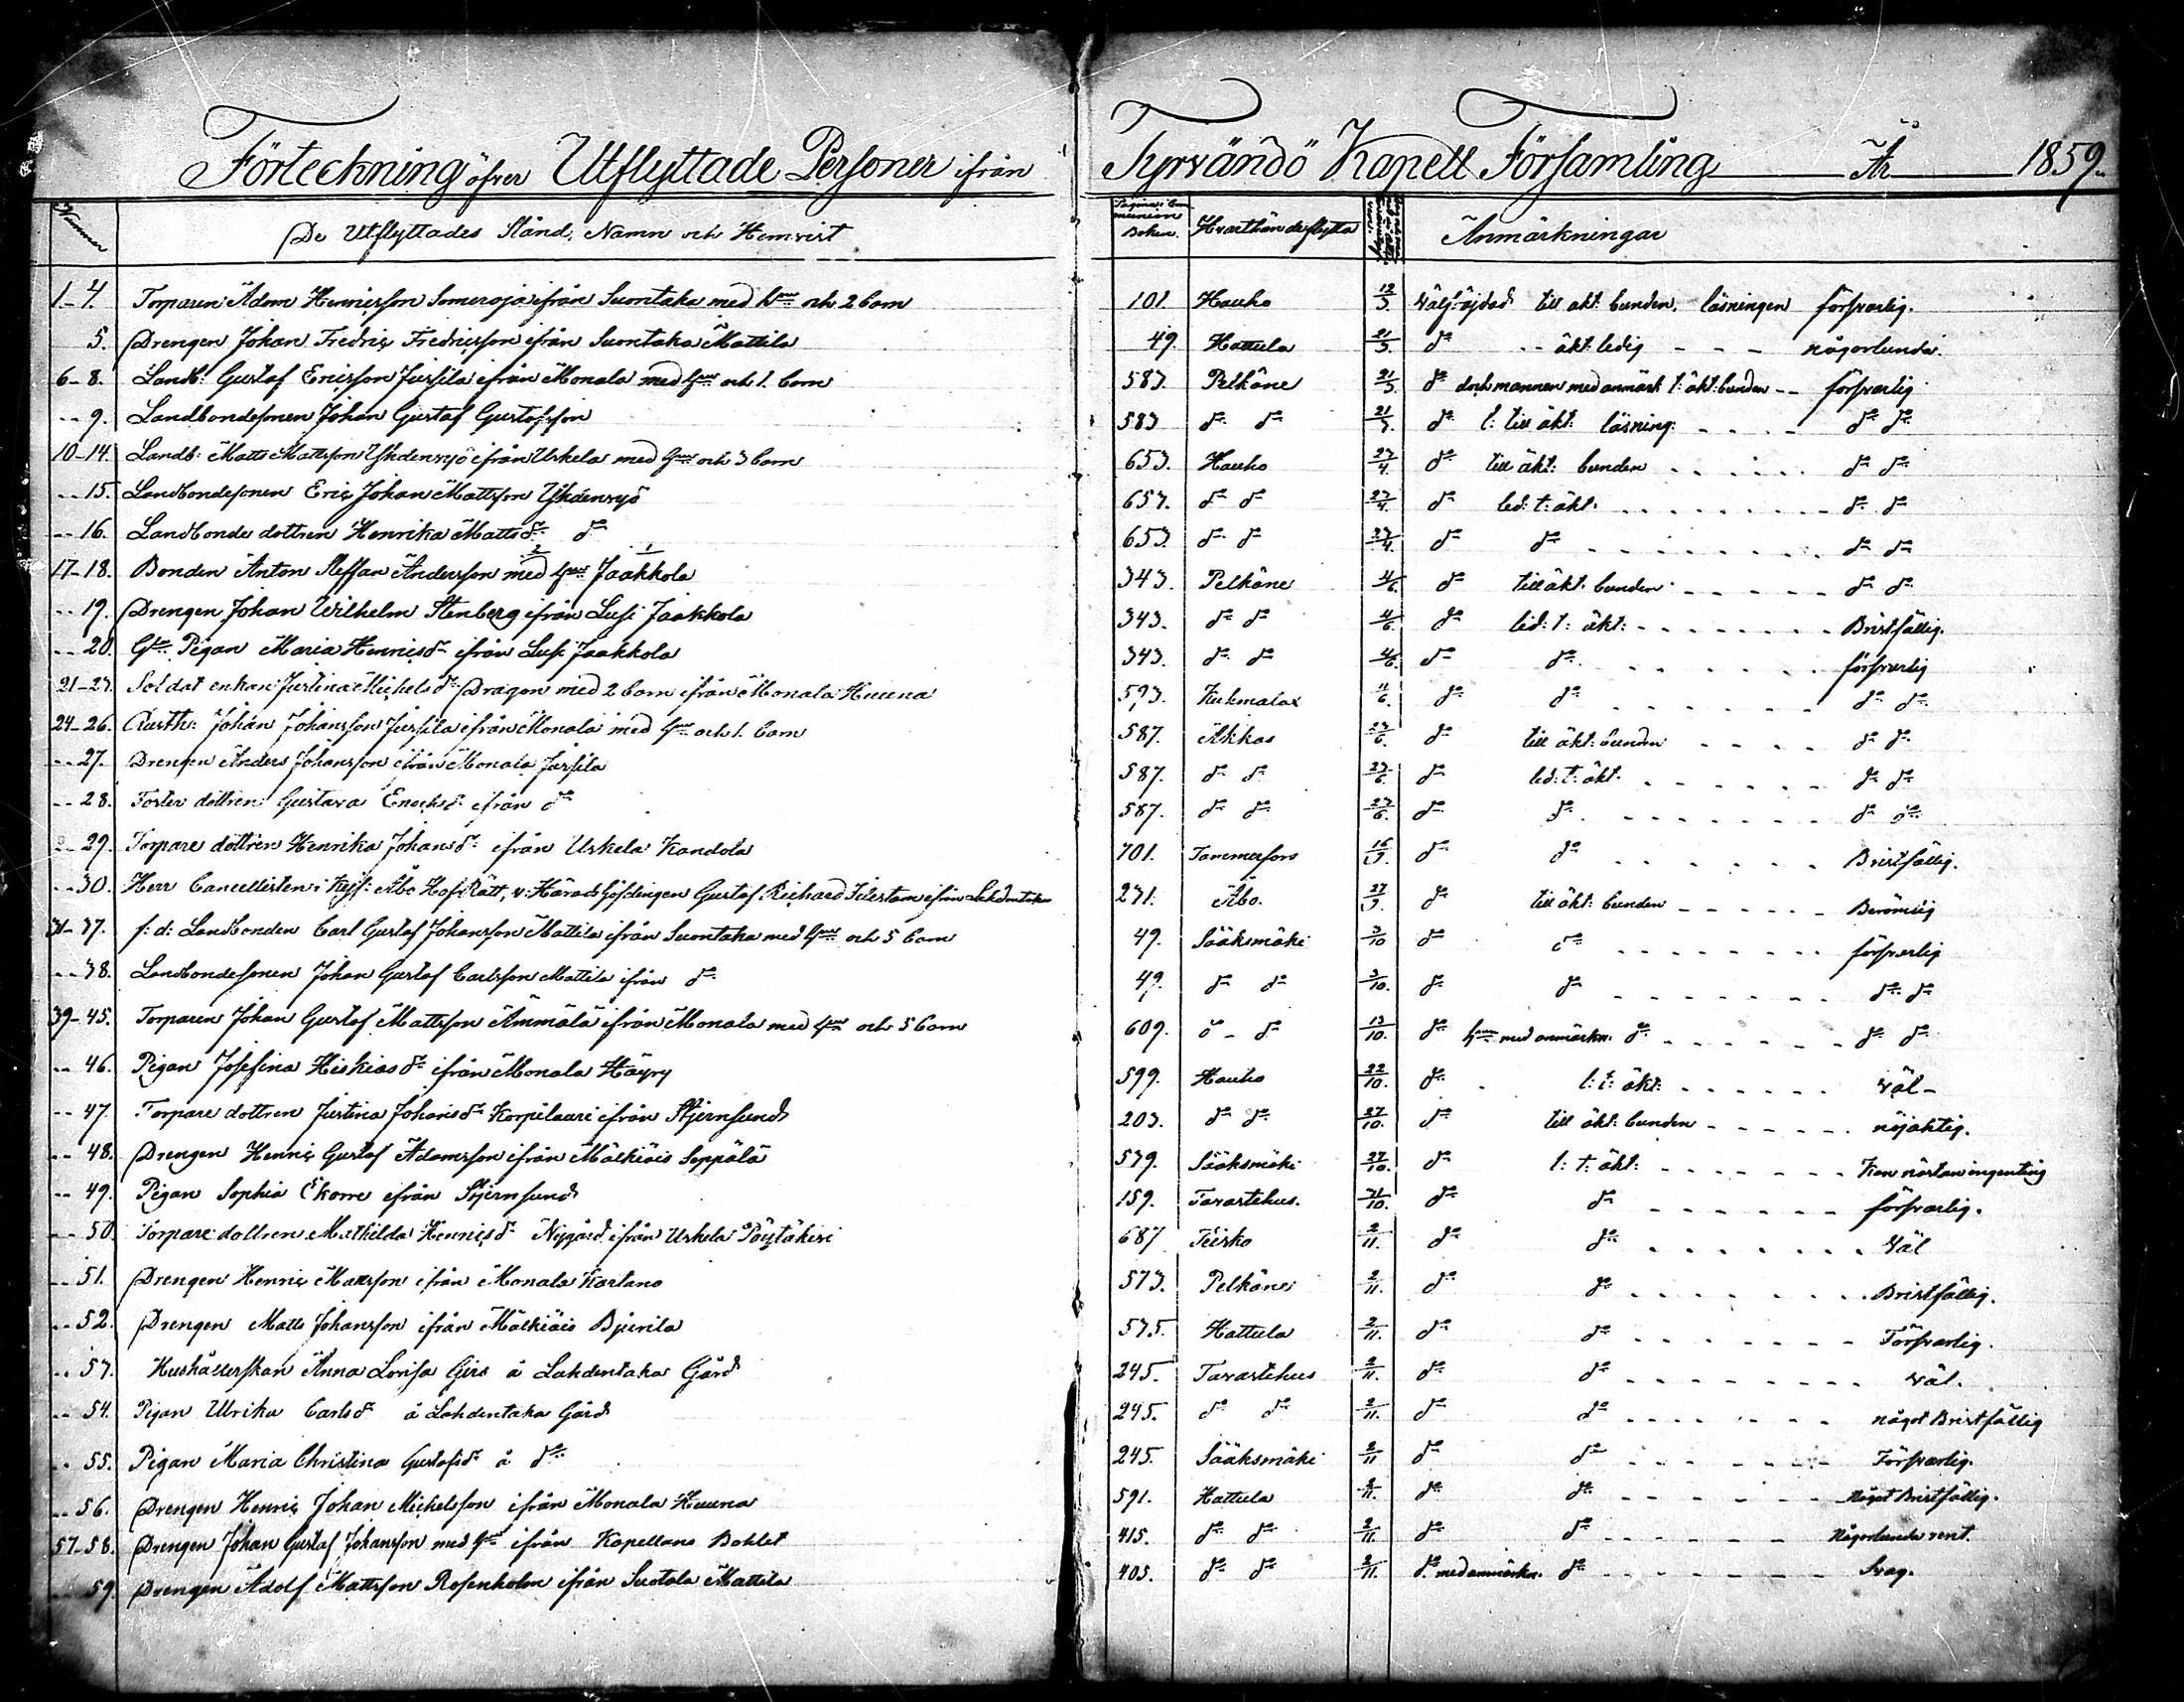 Förteckning öfver Utflyttade Personer ifrån Tyrvändö Kapell Församling År 1859.
Nummer De Utflyttades Stånd, Namn och Hemvist Boken. Hvarthän de flytta Anmärkningar
1-4. Torparen Adam Henricsson Someroja ifrån Suontaka med h:u och 2 barn 101. Hauho 12/3. till äkt: bunden, läsningen försvarlig.
5. Drengen Johan Fredric Fredricsson ifrån Suontaka Mattila 49. Hattula 21/3. d:o äkt: ledig - - - någorlunda.
6-8. Landb: Gustaf Ericsson Jussila ifrån Monala med h:u och 1. barn 583. Pelkäne 21/3. d:o doch mannen med anmärk t: äkt: bunden - - försvarlig
9. Landbondesonen Johan Gustaf Gustafsson 583 d:o d:o 21/3. d:o l: till äkt: läsning: - - - - d:o d:o
10-14. Landb: Matts Mattsson Yhdensyö ifrån Uskela med h:u och 3 barn 653. Hauho 23/4. d:o till äkt: bunden . . . . . . d:o d:o
15. Landbondesonen Eric Johan Mattsson Yhdensyö 653. d:o d:o 23/4. d:o led: t: äkt: . . . . . . . d:o d:o
16. Landbonde dottren Henrika Mattsd:r d:o 653. d:o d:o 23/4. d:o d:o . . . . . . . d:o d:o
17-18. Bonden Anton Steffan Andersson med h:u Jaakkola 343. Pelkäne 4/6. d:o till äkt: bunden - - - - - d:o d:o
19. Drengen Johan Wilhelm Stenberg ifrån Lusi Jaakkola 343. d:o d:o 4/6. d:o led: t: äkt: - - - - - - - Bristfällig.
20. Pigan Maria Henricsd:r ifrån Lusi Jaakkola 343. d:o d:o 4/6. d:o d:o . . . . . . . försvarlig
21-23. Soldat enkan Justina Michelsd:r Dragon med 2 barn ifrån Monala Huuna 593. Kuhmalax 11/6. d:o d:o . . . . . . . d:o d:o
24-26. Rusth: Johan Johansson Jussila ifrån Monala med h:u och 1. barn 587. Akkas 23/6. d:o till äkt: bunden - - - - d:o d:o
27. Drengen Anders Johansson ifrån Monala Jussila 587. d:o d:o 23/6. d:o led: t: äkt. - - - - - - d:o d:o
28. Foster dottren Gustava Enochsd:r ifrån d:o 587. d:o d:o 23/6. d:o d:o . - - - - - - - d:o d:o
29. Torpare dottren Henrika Johansd:r ifrån Uskela Kandola 701. Tammerfors 16/9. d:o d:o - - - - - - Bristfällig.
30. Herr Cancellisten i Kejs: Åbo Hof Rätt, v: Häradshöfdingen Gustaf Richard ifrån Lahdentaka 231. Åbo. 27/9. d:o till äkt: bunden - - - - - - Berömlig
31-37. f: d: Landbonden Carl Gustaf Johansson Mattila ifrån Suontaka med h:u och 5 barn 49. Sääksmäki 3/10 d:o d:o - - - - - - - - försvarlig
38. Landbondesonen Johan Gustaf Carlsson Mattila ifrån d:o 49. d:o d:o 3/10. d:o d:o - - - - - - - - d:o d:o
39-45. Torparen Johan Gustaf Mattsson Ämmälä ifrån Monala med h:u och 5 barn 609. d:o - d:o 13/10. d:o med anmärkn. d:o - - - - - - d:o d:o
46. Pigan Josefina Hiskiasd:r ifrån Monala Häyry 599. Hauho 22/10. d:o l: t: äkt: - - - - - - Väl -
47. Torpare dottren Justina Johansd:r Korpilauri ifrån Stjernsund 203. d:o d:o 27/10. d:o till äkt: bunden - - - - - - nöjaktig.
48. Drengen Henric Gustaf Adamsson ifrån Mälkiäis Seppälä 539. Sääksmäki 27/10. d:o l: t: äkt: - - - - - - - Kan nästan ingenting
49. Pigan Sophia Ekorre ifrån Stjernsund 159. Tavastehus. 31/10. d:o d:o - - - - - - försvarlig.
50. Torpare dottren Mathilda Henricsd:r Nygård ifrån Uskela Pöytäkivi 687 Teisko 2/11. d:o d:o . . . . . . . Väl
51. Drengen Henric Mattsson ifrån Monala Kartano 573. Pelkäne 2/11. d:o d:o . . . . . . . Bristfällig.
52. Drengen Matts Johansson ifrån Mälkiäis Bjerila 535. Hattula 2/11. d:o d:o - - - - - - - Försvarlig.
53. Hushållerskan Anna Lovisa Girs å Lahdentaka Gård 245. Tavastehus 2/11. d:o d:o - - - - - - - - - Väl.
54. Pigan Ulrika Carlsd:r å Lahdentaka Gård 245. d:o d:o 2/11. d:o d:o - - - - - - - något Bristfällig
55. Pigan Maria Christina Gustafsd:r å d:o 245. Sääksmäki 2/11 d:o d:o - - - - - - - - Försvarlig.
56. Drengen Henric Johan Michelsson ifrån Monala Huuna 591. Hattula 2/11. d:o d:o - - - - - - Något Bristfällig.
57-58. Drengen Johan Gustaf Johansson med h:u ifrån Kapellans Bohlet 415. d:o d:o 2/11. d:o d:o - - - - - - Någorlunda rent.
59. Drengen Adolf Mattsson Rosenholm ifrån Suotala Mattila 405. d:o d:o 2/11. d:o med anmärkn. d:o - - - - - - - Svag.